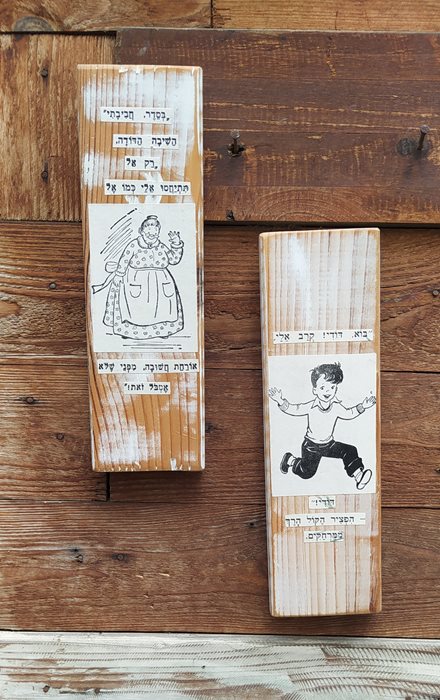 „בְּסֵדֶר. חֲבִיבָתִי”
הֵשִׁיבָה הַדּוֹדָה.
„רַק אַל
תִּתְיַחֲסוּ אֵלַי כְּמוֹ אֶל
אוֹרַחַת חֲשׁוּבָה, מִפְּנֵי שֶׁלֹּא
אֶסְבֹּל זֹאת!”
„בּוֹא. דּוּדִי! קְרַב אֵלַי,
דּוּדִי!”
– הִפְצִיר הַקּוֹל הָרַךְ
מִמֶּרְחַקִּים.